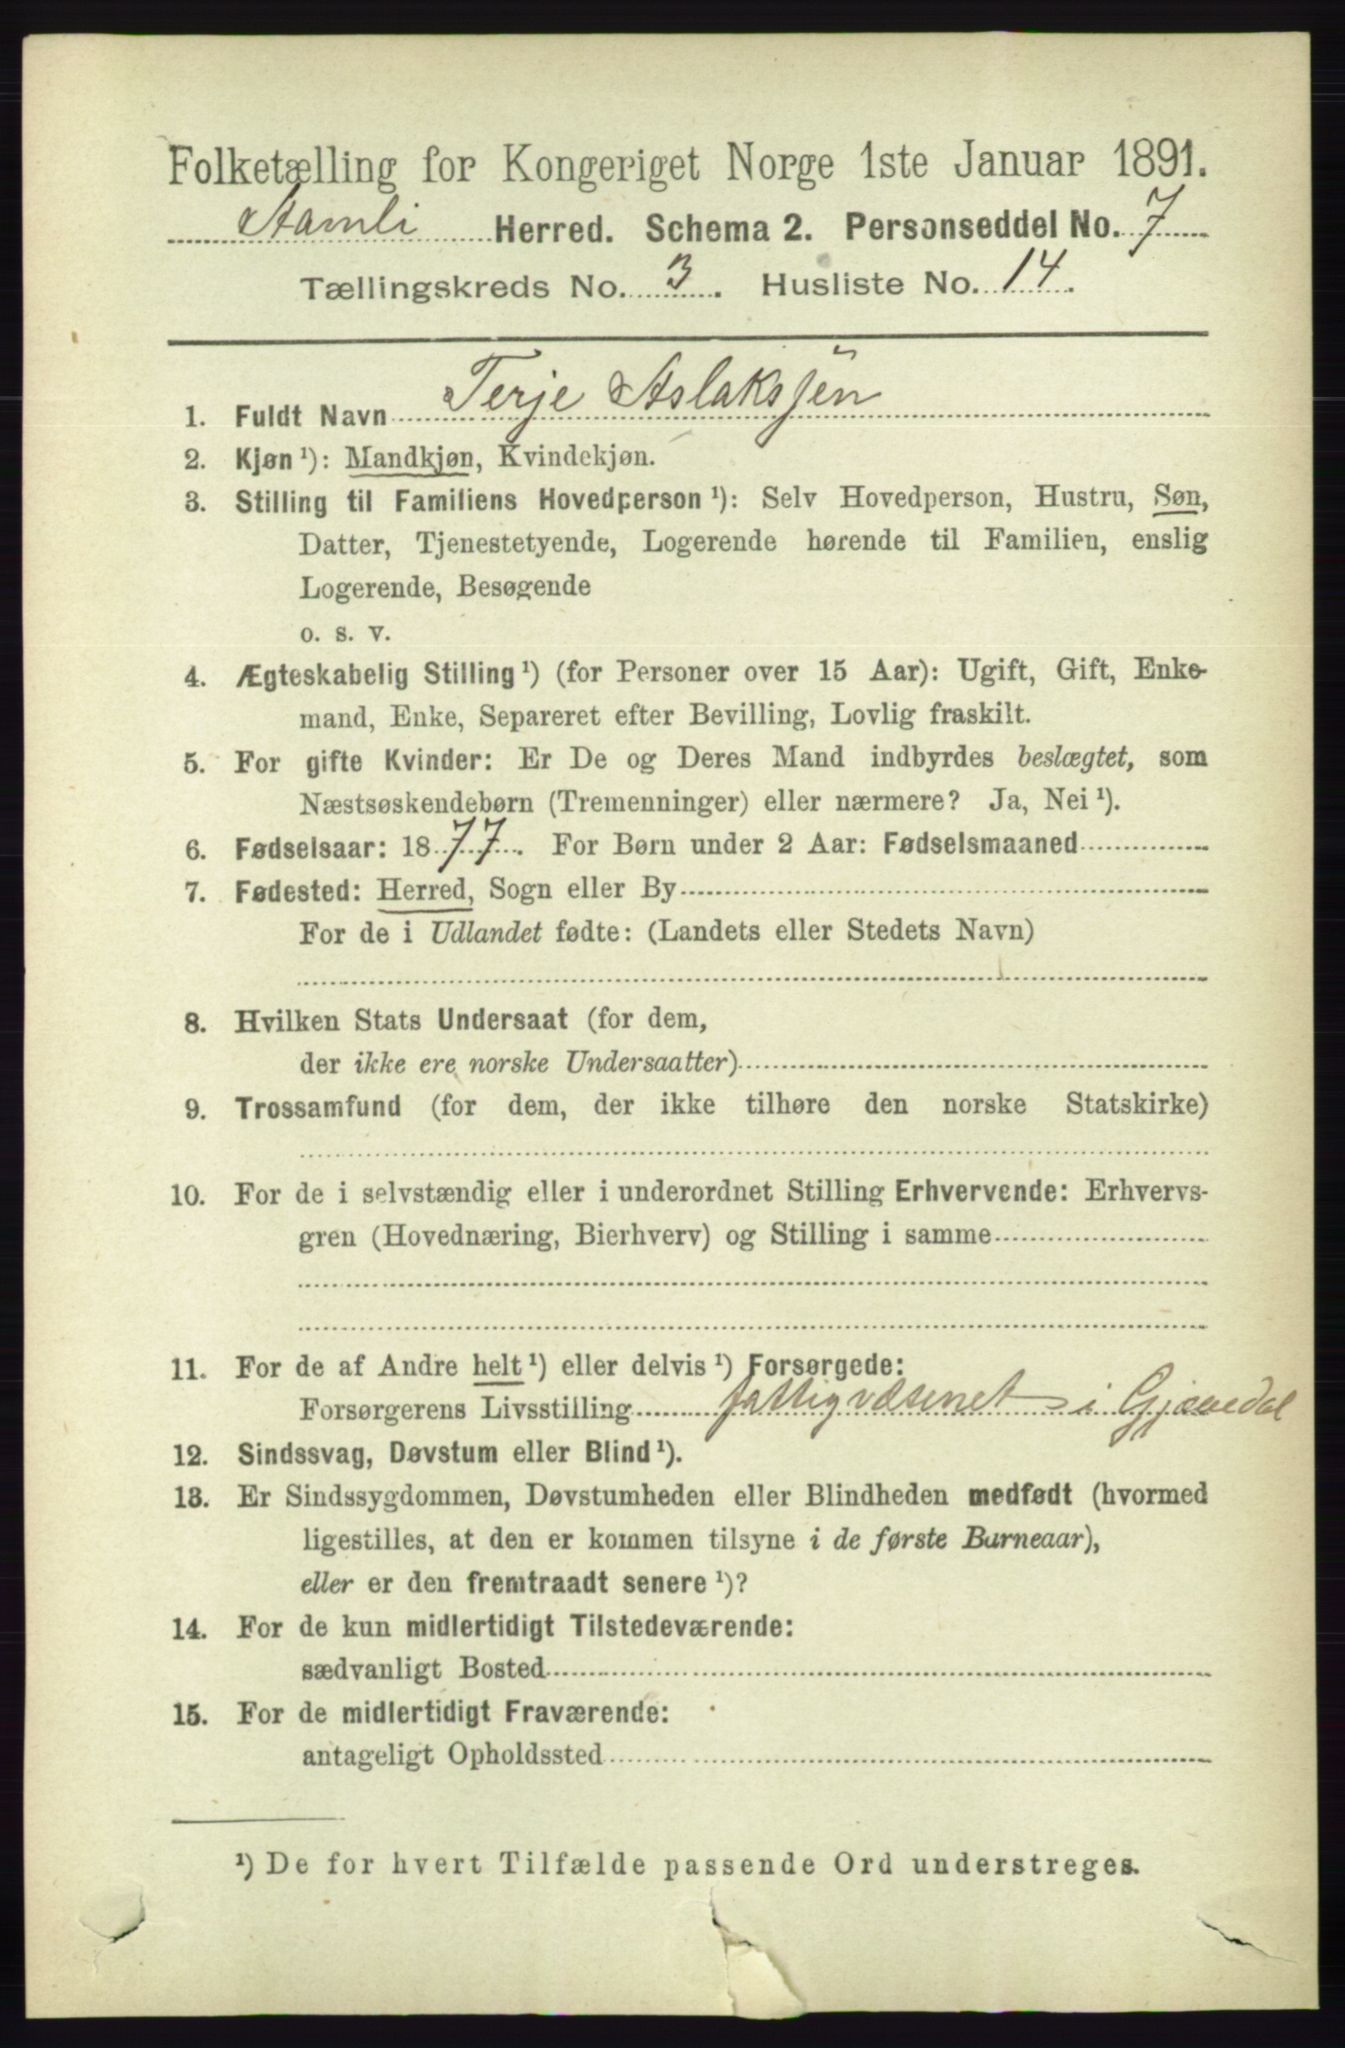 Folketælling for Kongeriget Norge 1ste Januar 1891.
Aamli Herred. Schema 2. Personseddel No. 7
Tællingskreds No. 3. Husliste No. 14.
1. Fuldt Navn Terje Aslaksen
2. Kjøn ¹): Mandkjøn, Kvindekjøn.
3. Stilling til Familiens Hovedperson ¹): Selv Hovedperson, Hustru, Søn,
Datter, Tjenestetyende, Logerende hørende til Familien, enslig
Logerende, Besøgende
o. s. v.
4. Ægteskabelig Stilling ¹) (for Personer over 15 Aar): Ugift, Gift, Enke-
mand, Enke, Separeret efter Bevilling, Lovlig fraskilt.
5. For gifte Kvinder: Er De og Deres Mand indbyrdes beslægtet, som
Næstsøskendebørn (Tremenninger) eller nærmere? Ja, Nei ¹).
6. Fødselsaar: 1877. For Børn under 2 Aar: Fødselsmaaned
7. Fødested: Herred, Sogn eller By
For de i Udlandet fødte: (Landets eller Stedets Navn)
8. Hvilken Stats Undersaat (for dem,
der ikke ere norske Undersaatter)
9. Trossamfund (for dem, der ikke tilhøre den norske Statskirke)
10. For de i selvstændig eller i underordnet Stilling Erhvervende: Erhvervs-
gren (Hovednæring, Bierhverv) og Stilling i samme
11. For de af Andre helt ¹) eller delvis ¹) Forsørgede:
Forsørgerens Livsstilling fattigvæsenet i Gjøvedal
12. Sindssvag, Døvstum eller Blind ¹).
13. Er Sindssygdommen, Døvstumheden eller Blindheden medfødt (hvormed
ligestilles, at den er kommen tilsyne i de første Barneaar),
eller er den fremtraadt senere ¹)?
14. For de kun midlertidigt Tilstedeværende:
sædvanligt Bosted
15. For de midlertidigt Fraværende:
antageligt Opholdssted
¹) De for hvert Tilfælde passende Ord understreges.